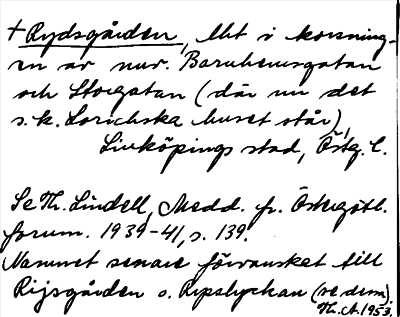 + Rydsgården, lht i korsning-
en av nuv. Barnhemsgatan
och Storgatan (där nu det
s.k. Lorichska huset står),
Linköpings stad, Östg. l.
Se Th. Lindell, Medd. fr. Östergötl.
fornm. 1939-41, s. 139.
Namnet senare förvanskat till
Rijsgården o. Ripslyckan (se dem).
Th. A. 1953.